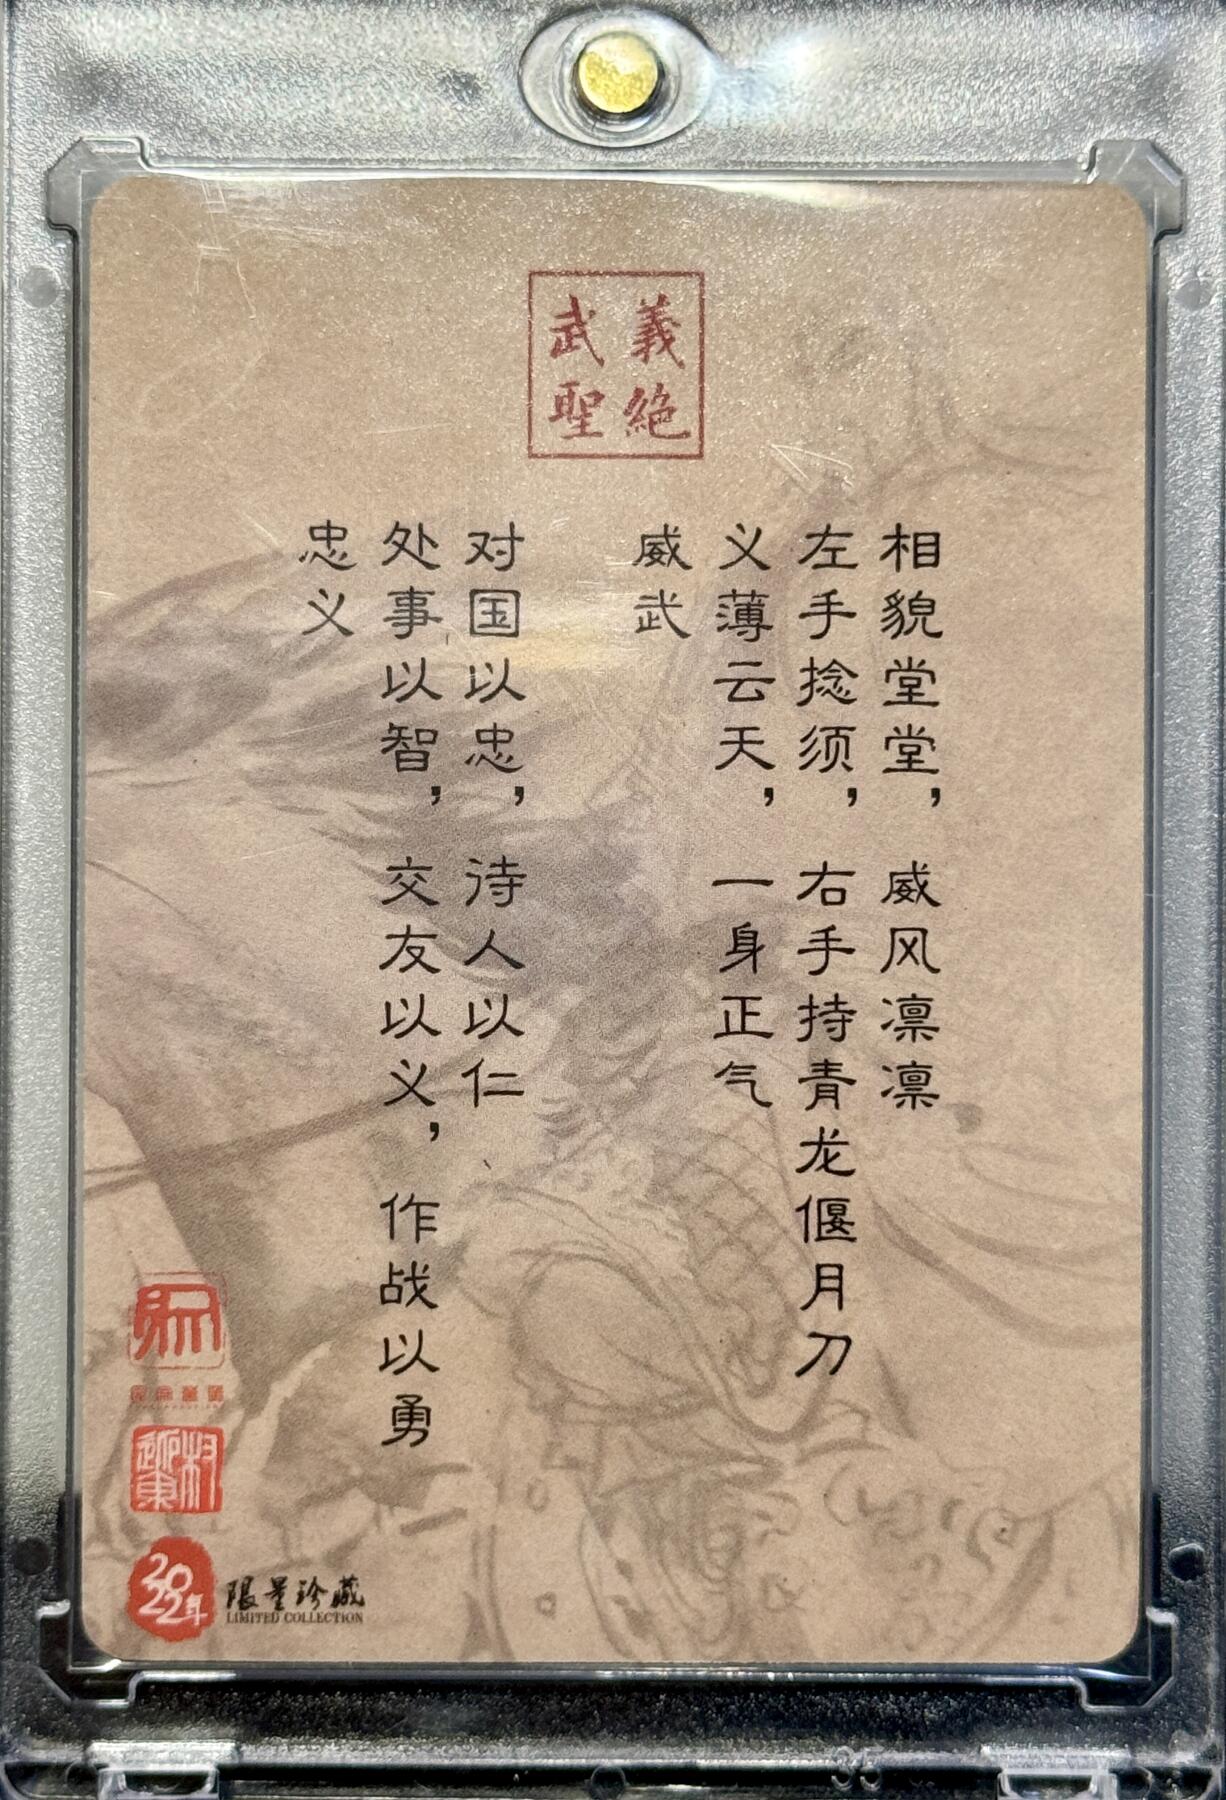 義絶
武聖
相貌堂堂，威风凛凛
左手捻须，右手持青龙偃月刀
义薄云天，一身正气
威武
对国以忠，待人以仁
处事以智，交友以义，作战以勇
忠义
2022年
限量珍藏
LIMITED COLLECTION
35